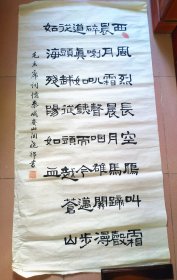 西風烈長空雁叫霜
晨月霜晨月馬蹄聲
碎喇叭聲咽雄關漫
道真如鐵而今邁步
從頭越從頭越蒼山
如海殘陽如血
毛主席詞憶秦娥婁山關 書